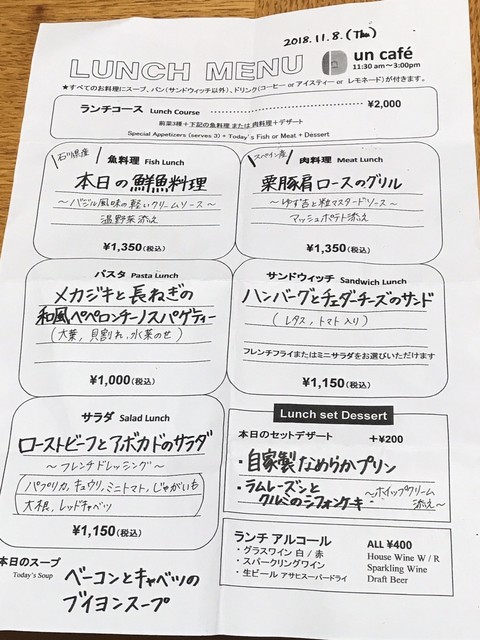 2018.11.8.(Thu)
LUNCH MENU
un café
11:30 am～3:00pm
★すべてのお料理にスープ、パン(サンドウィッチ以外)、ドリンク(コーヒー or アイスティー or レモネード)が付きます。
ランチコース Lunch Course ¥2,000
前菜3種＋下記の魚料理 または 肉料理＋デザート
Special Appetizers (serves 3) + Today's Fish or Meat + Dessert
石川県産
魚料理 Fish Lunch
本日の鮮魚料理
～バジル風味の軽いクリームソース～
温野菜添え
¥1,350(税込)
スペイン産
肉料理 Meat Lunch
栗豚肩ロースのグリル
～ゆず吉と粒マスタードソース～
マッシュポテト添え
¥1,350(税込)
パスタ Pasta Lunch
メカジキと長ねぎの
和風ペペロンチーノスパゲティー
(大葉、貝割れ、水菜のせ)
¥1,000(税込)
サンドウィッチ Sandwich Lunch
ハンバーグとチェダーチーズのサンド
(レタス,トマト入り)
フレンチフライまたはミニサラダをお選びいただけます
¥1,150(税込)
サラダ Salad Lunch
ローストビーフとアボカドのサラダ
～フレンチドレッシング～
(パプリカ,キュウリ,ミニトマト,じゃがいも
大根,レッドキャベツ)
¥1,150(税込)
Lunch set Dessert
本日のセットデザート +¥200
・自家製なめらかプリン
・ラムレーズンと
クルミのシフォンケーキ
～ホイップクリーム
添え～
本日のスープ
Today's Soup
ベーコンとキャベツの
ブイヨンスープ
ランチ アルコール ALL ¥400
・グラスワイン 白 / 赤 House Wine W / R
・スパークリングワイン Sparkling Wine
・生ビール アサヒスーパードライ Draft Beer